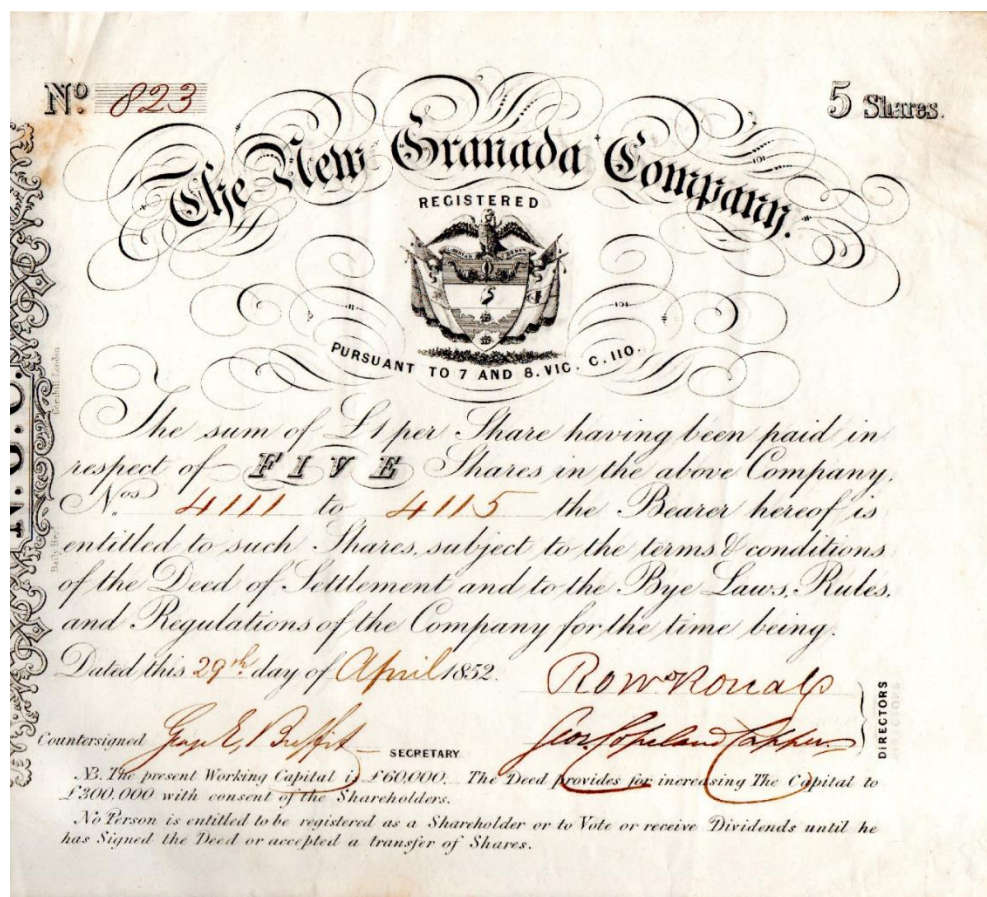 Nº 823
5 Shares.
The New Granada Company.
REGISTERED
PURSUANT TO 7 AND 8. VIC. C. 110.
N. G. C.
Cornhill, London
The sum of £1 per Share having been paid in
respect of FIVE Shares in the above Company,
Nos. 4111 to 4115 the Bearer hereof is
entitled to such Shares, subject to the terms & conditions
of the Deed of Settlement and to the Bye Laws, Rules,
and Regulations of the Company for the time being.
Dated this 29th. day of April 1852.
Geo. Copeland Capper
DIRECTORS
Countersigned
SECRETARY
NB. The present Working Capital is £60,000. The Deed provides for increasing The Capital to
£300,000 with consent of the Shareholders.
No Person is entitled to be registered as a Shareholder or to Vote or receive Dividends until he
has Signed the Deed or accepted a transfer of Shares.